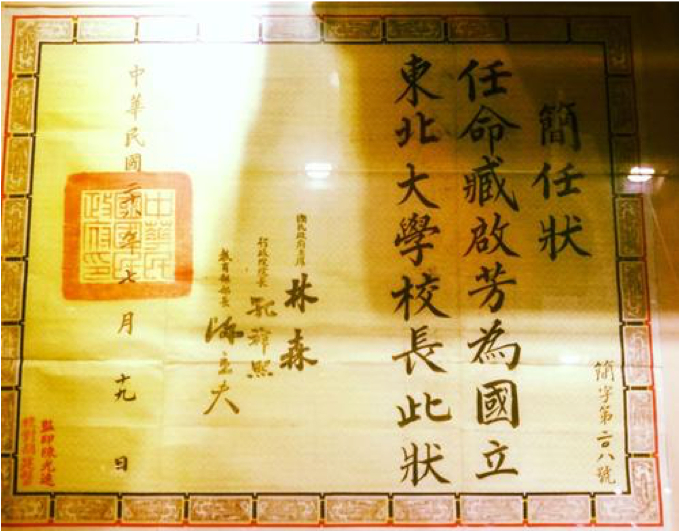 簡任狀
任命臧啟芳為國立
東北大學校長此狀
國民政府主席 林森
行政院院長 孔祥熙
教育部部長 陳立夫
中華民國二十八年七月十九日
簡字第二〇八號
中華民國國民政府印